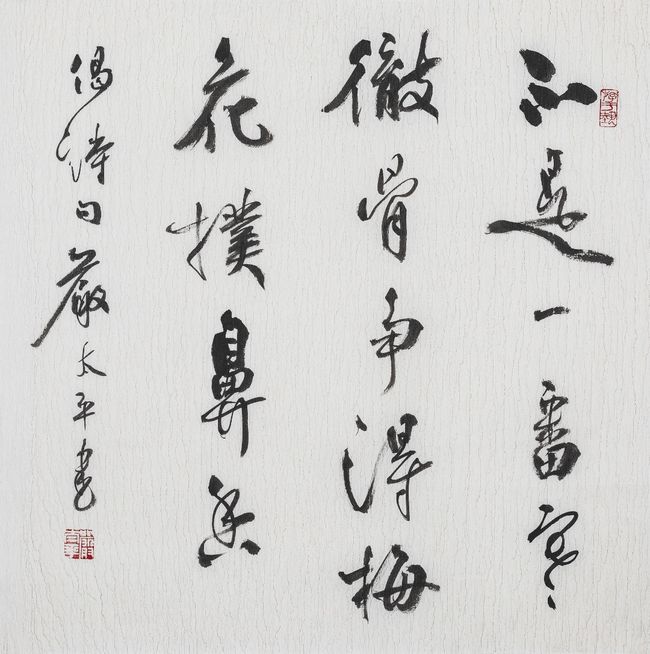 不是一番寒
徹骨争得梅
花撲鼻香
偈詩句嚴太平書